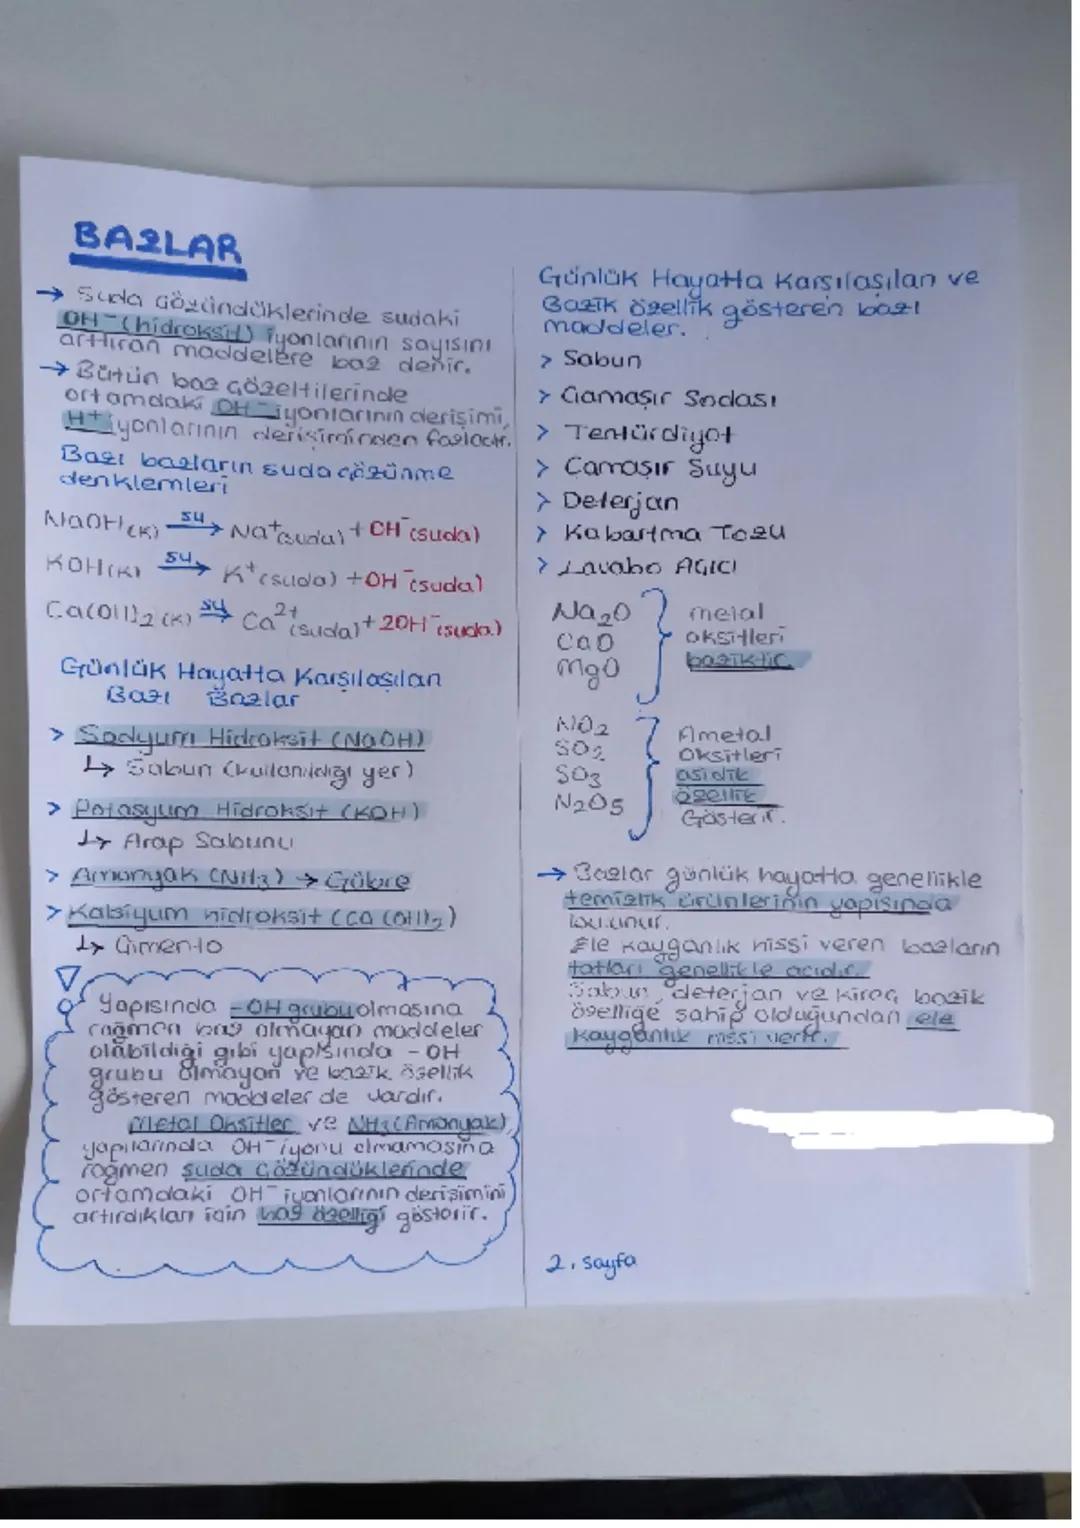 BAZLAR
→ Suda Gözündüklerinde sudaki
OH⁻ (hidroksit) iyonlarının sayısını
arttıran maddelere baz denir.
→ Bütün baz çözeltilerinde
ortamdaki OH⁻ iyonlarının derişimi,
H⁺ iyonlarının derişiminden fazladır.
Bazı bazların suda çözünme
denklemleri
NaOH(K) su→ Na⁺(suda) + OH⁻(suda)
KOH(K) su→ K⁺(suda) + OH⁻(suda)
Ca(OH)₂(K) su→ Ca²⁺(suda) + 2OH⁻(suda)
Günlük Hayatta Karşılaşılan
Bazı Bazlar
> Sodyum Hidroksit (NaOH)
↳ Sabun (kullanıldığı yer)
> Potasyum Hidroksit (KOH)
↳ Arap Sabunu
> Amonyak (NH₃) → Gübre
> Kalsiyum hidroksit (Ca(OH)₂)
↳ Çimento
Yapısında -OH grubu olmasına
rağmen baz olmayan maddeler
olabildiği gibi yapısında -OH
grubu olmayan ve bazik özellik
gösteren maddeler de vardır.
Metal Oksitler ve NH₃ (Amonyak),
yapılarında OH⁻ iyonu olmamasına
rağmen suda çözündüklerinde
ortamdaki OH⁻ iyonlarının derişimini
artırdıkları için baz özelliği gösterir.
Günlük Hayatta Karşılaşılan ve
Bazik özellik gösteren bazı
maddeler.
> Sabun
> Çamaşır Sodası
> Tentürdiyot
> Çamaşır Suyu
> Deterjan
> Kabartma Tozu
> Lavabo AÇICI
Na₂O
CaO
MgO
metal
oksitleri
baziktir
NO₂
SO₂
SO₃
N₂O₅
Ametal
Oksitleri
asidik
özellik
Gösterir.
→ Bazlar günlük hayatta genellikle
temizlik ürünlerinin yapısında
bulunur.
Ele kayganlık hissi veren bazların
tatları genellikle acıdır.
Sabun, deterjan ve kireç bazik
özelliğe sahip olduğundan ele
kayganlık hissi verir.
2. sayfa